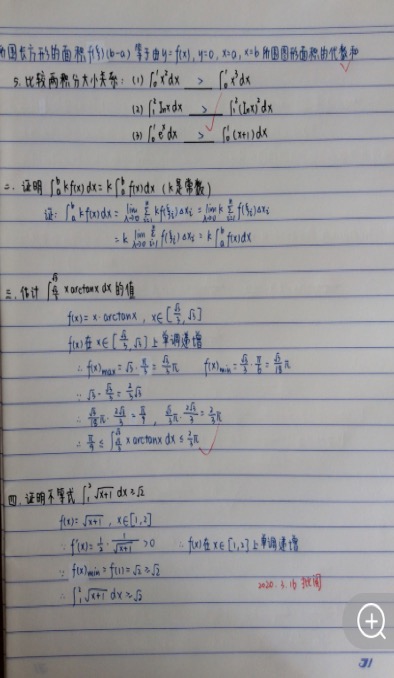 所围长方形的面积f(ξ)(b-a) 等于由y=f(x), y=0, x=a, x=b所围图形面积的代数和
5. 比较两积分大小关系: (1) ∫₀¹x²dx > ∫₀¹x³dx
(2) ∫₁²lnxdx > ∫₁²(lnx)²dx
(3) ∫₀¹eˣdx > ∫₀¹(x+1)dx
二. 证明 ∫ₐᵇkf(x)dx = k∫ₐᵇf(x)dx (k是常数)
证: ∫ₐᵇkf(x)dx = lim_{λ→0} Σ_{i=1}^{n} kf(ξᵢ)Δxᵢ = lim_{λ→0} k Σ_{i=1}^{n} f(ξᵢ)Δxᵢ
= k lim_{λ→0} Σ_{i=1}^{n} f(ξᵢ)Δxᵢ = k∫ₐᵇf(x)dx
三. 估计 ∫_{√3/3}^{√3} xarctanxdx 的值
f(x)=x·arctanx, x∈[√3/3, √3]
f(x)在x∈[√3/3, √3]上单调递增
∴ f(x)max=√3·π/3=√3/3π f(x)min=√3/3·π/6=√3/18π
∵ √3-√3/3=2/3√3
∴ √3/18π·2√3/3=π/9, √3/3π·2√3/3=2/3π
∴ π/9 ≤ ∫_{√3/3}^{√3} xarctanxdx ≤ 2/3π
四. 证明不等式 ∫₁²√(x+1)dx≥√2
f(x)=√(x+1), x∈[1,2]
∵ f'(x)=1/2·1/√(x+1)>0 ∴ f(x)在x∈[1,2]上单调递增
∵ f(x)min=f(1)=√2≥√2
∴ ∫₁²√(x+1)dx≥√2
2020.3.16 批阅